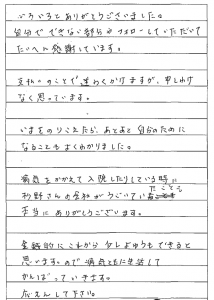 いろいろとありがとうございました。
自分でできない部分をフォローしていただいて
たいへん感謝しています。
支払いのことで迷わくかけますが、申しわけ
なく思っています。
いまをのりこえたら、あとあと自分のために
なることもよくわかりました。
病気をかかえて入院したりしている時に
杉野さんの会社がうごいていたことを
本当にありがとうございます。
金銭的にこれから少しよゆうもできると
思います。ので病気ともに生活して
がんばっていきます。
応えんして下さい。